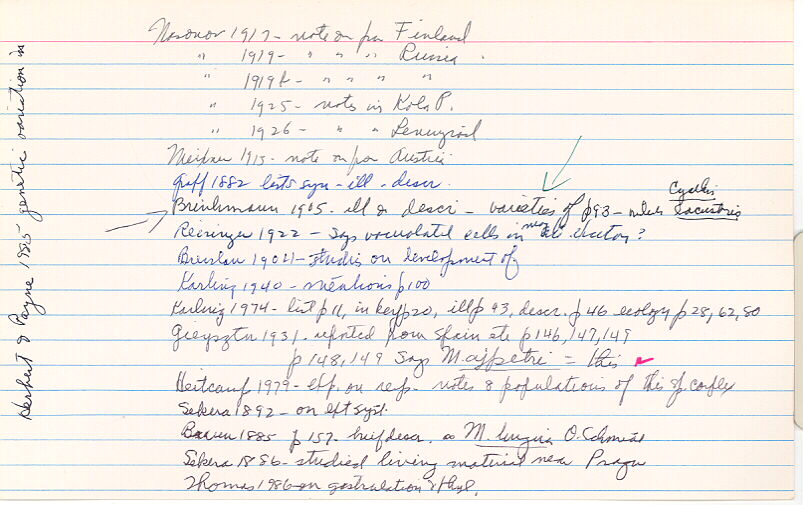 Nasonov 1917 - note on fr Finland
" 1919 - " " " Russia.
" 1919b - " " " "
" 1925 - notes in Kola P.
" 1926 - " " Leningrad
Meixner 1915 - note on fr Austria
Graff 1882 lists syn - ill - descr.
Brinkmann 1905 - ill & descr - varieties of p 93 - Cyathis lacustris
Reisinger 1922 - Says vacuolated cells in ductus?
Bresslau 1904 - studies on development of
Karling 1940 - mentions p 100
Karling 1974 - list p 11, in key p 20, ill p 43, descr. p 46 ecology p 28, 62, 80
Gieysztor 1931 - reported from Spain ste p 146, 147, 149
p 148, 149 Says M. ajpetri = this ✓
Heitkamp 1979 - eff. on resp. notes 8 populations of this sp. complex
Sekera 1892 - on ext syst.
Braun 1885 p 157 - brief descr. as M. lingua O. Schmidt
Sekera 1886 - studied living material near Prague
Thomas 1986 - on gastrulation & phyl.
Herbert & Payne 1985 genetic variation in